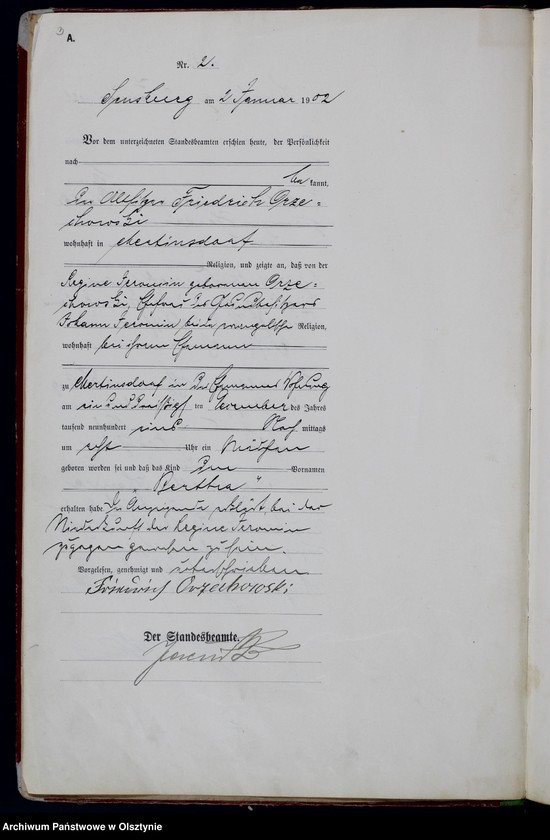 A.
Nr. 2.
Sensburg am 2 Januar 1902
Vor dem unterzeichneten Standesbeamten erschien heute, der Persönlichkeit
nach
be kannt,
der Altsitzer Friedrich Orze=
chowski
wohnhaft in Mertinsdorf
Religion, und zeigte an, daß von der
Regine Jeromin geborenen Orze=
chowski, Ehefrau des Grundbesitzers
Johann Jeromin, beide evangelischer Religion,
wohnhaft bei ihrem Ehemann
zu Mertinsdorf in der Ehemanns Wohnung
am ein und dreißigsten Dezember des Jahres
tausend neunhundert eins Nach mittags
um acht Uhr ein Mädchen
geboren worden sei und daß das Kind den Vornamen
"Bertha"
erhalten habe. Der Anzeigende erklärt, bei der
Niederkunft der Regine Jeromin
zugegen gewesen zu sein.
Vorgelesen, genehmigt und unterschrieben
Friedrich Orzechowski
Der Standesbeamte.
Archiwum Państwowe w Olsztynie